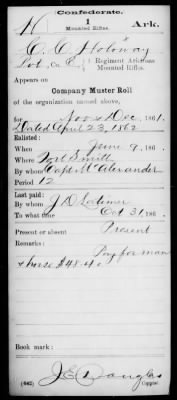 Confederate.
H 1 Ark.
Mounted Rifles.
C. C. Holoway
Pvt, Co. E, 1 Regiment Arkansas
Mounted Rifles.
Appears on
Company Muster Roll
of the organization named above,
for Nov & Dec, 1861.
Dated April 23, 1862
Enlisted:
When June 9, 186 .
Where Fort Smith
By whom Capt McAlexander
Period 12
Last paid:
By whom J D Latimer
To what time Oct 31, 186 .
Present or absent Present
Remarks: Pay for man
& horse $48.40
Book mark:
J E Douglas
(642) Copyist.